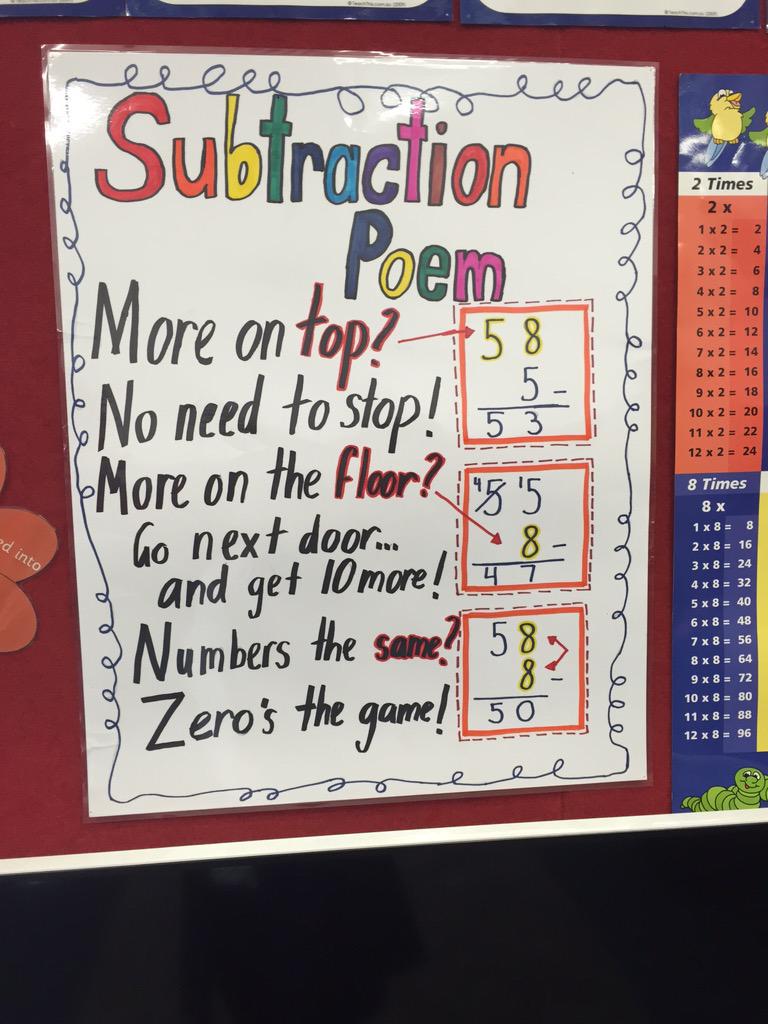 Subtraction
Poem
More on top?
No need to stop!
More on the floor?
Go next door...
and get 10 more!
Numbers the same?
Zero's the game!
5 8
5 -
5 3
4 5 15
8 -
4 7
5 8
8 -
5 0
ed into
2 Times
2 x
1 x 2 = 2
2 x 2 = 4
3 x 2 = 6
4 x 2 = 8
5 x 2 = 10
6 x 2 = 12
7 x 2 = 14
8 x 2 = 16
9 x 2 = 18
10 x 2 = 20
11 x 2 = 22
12 x 2 = 24
8 Times
8 x
1 x 8 = 8
2 x 8 = 16
3 x 8 = 24
4 x 8 = 32
5 x 8 = 40
6 x 8 = 48
7 x 8 = 56
8 x 8 = 64
9 x 8 = 72
10 x 8 = 80
11 x 8 = 88
12 x 8 = 96